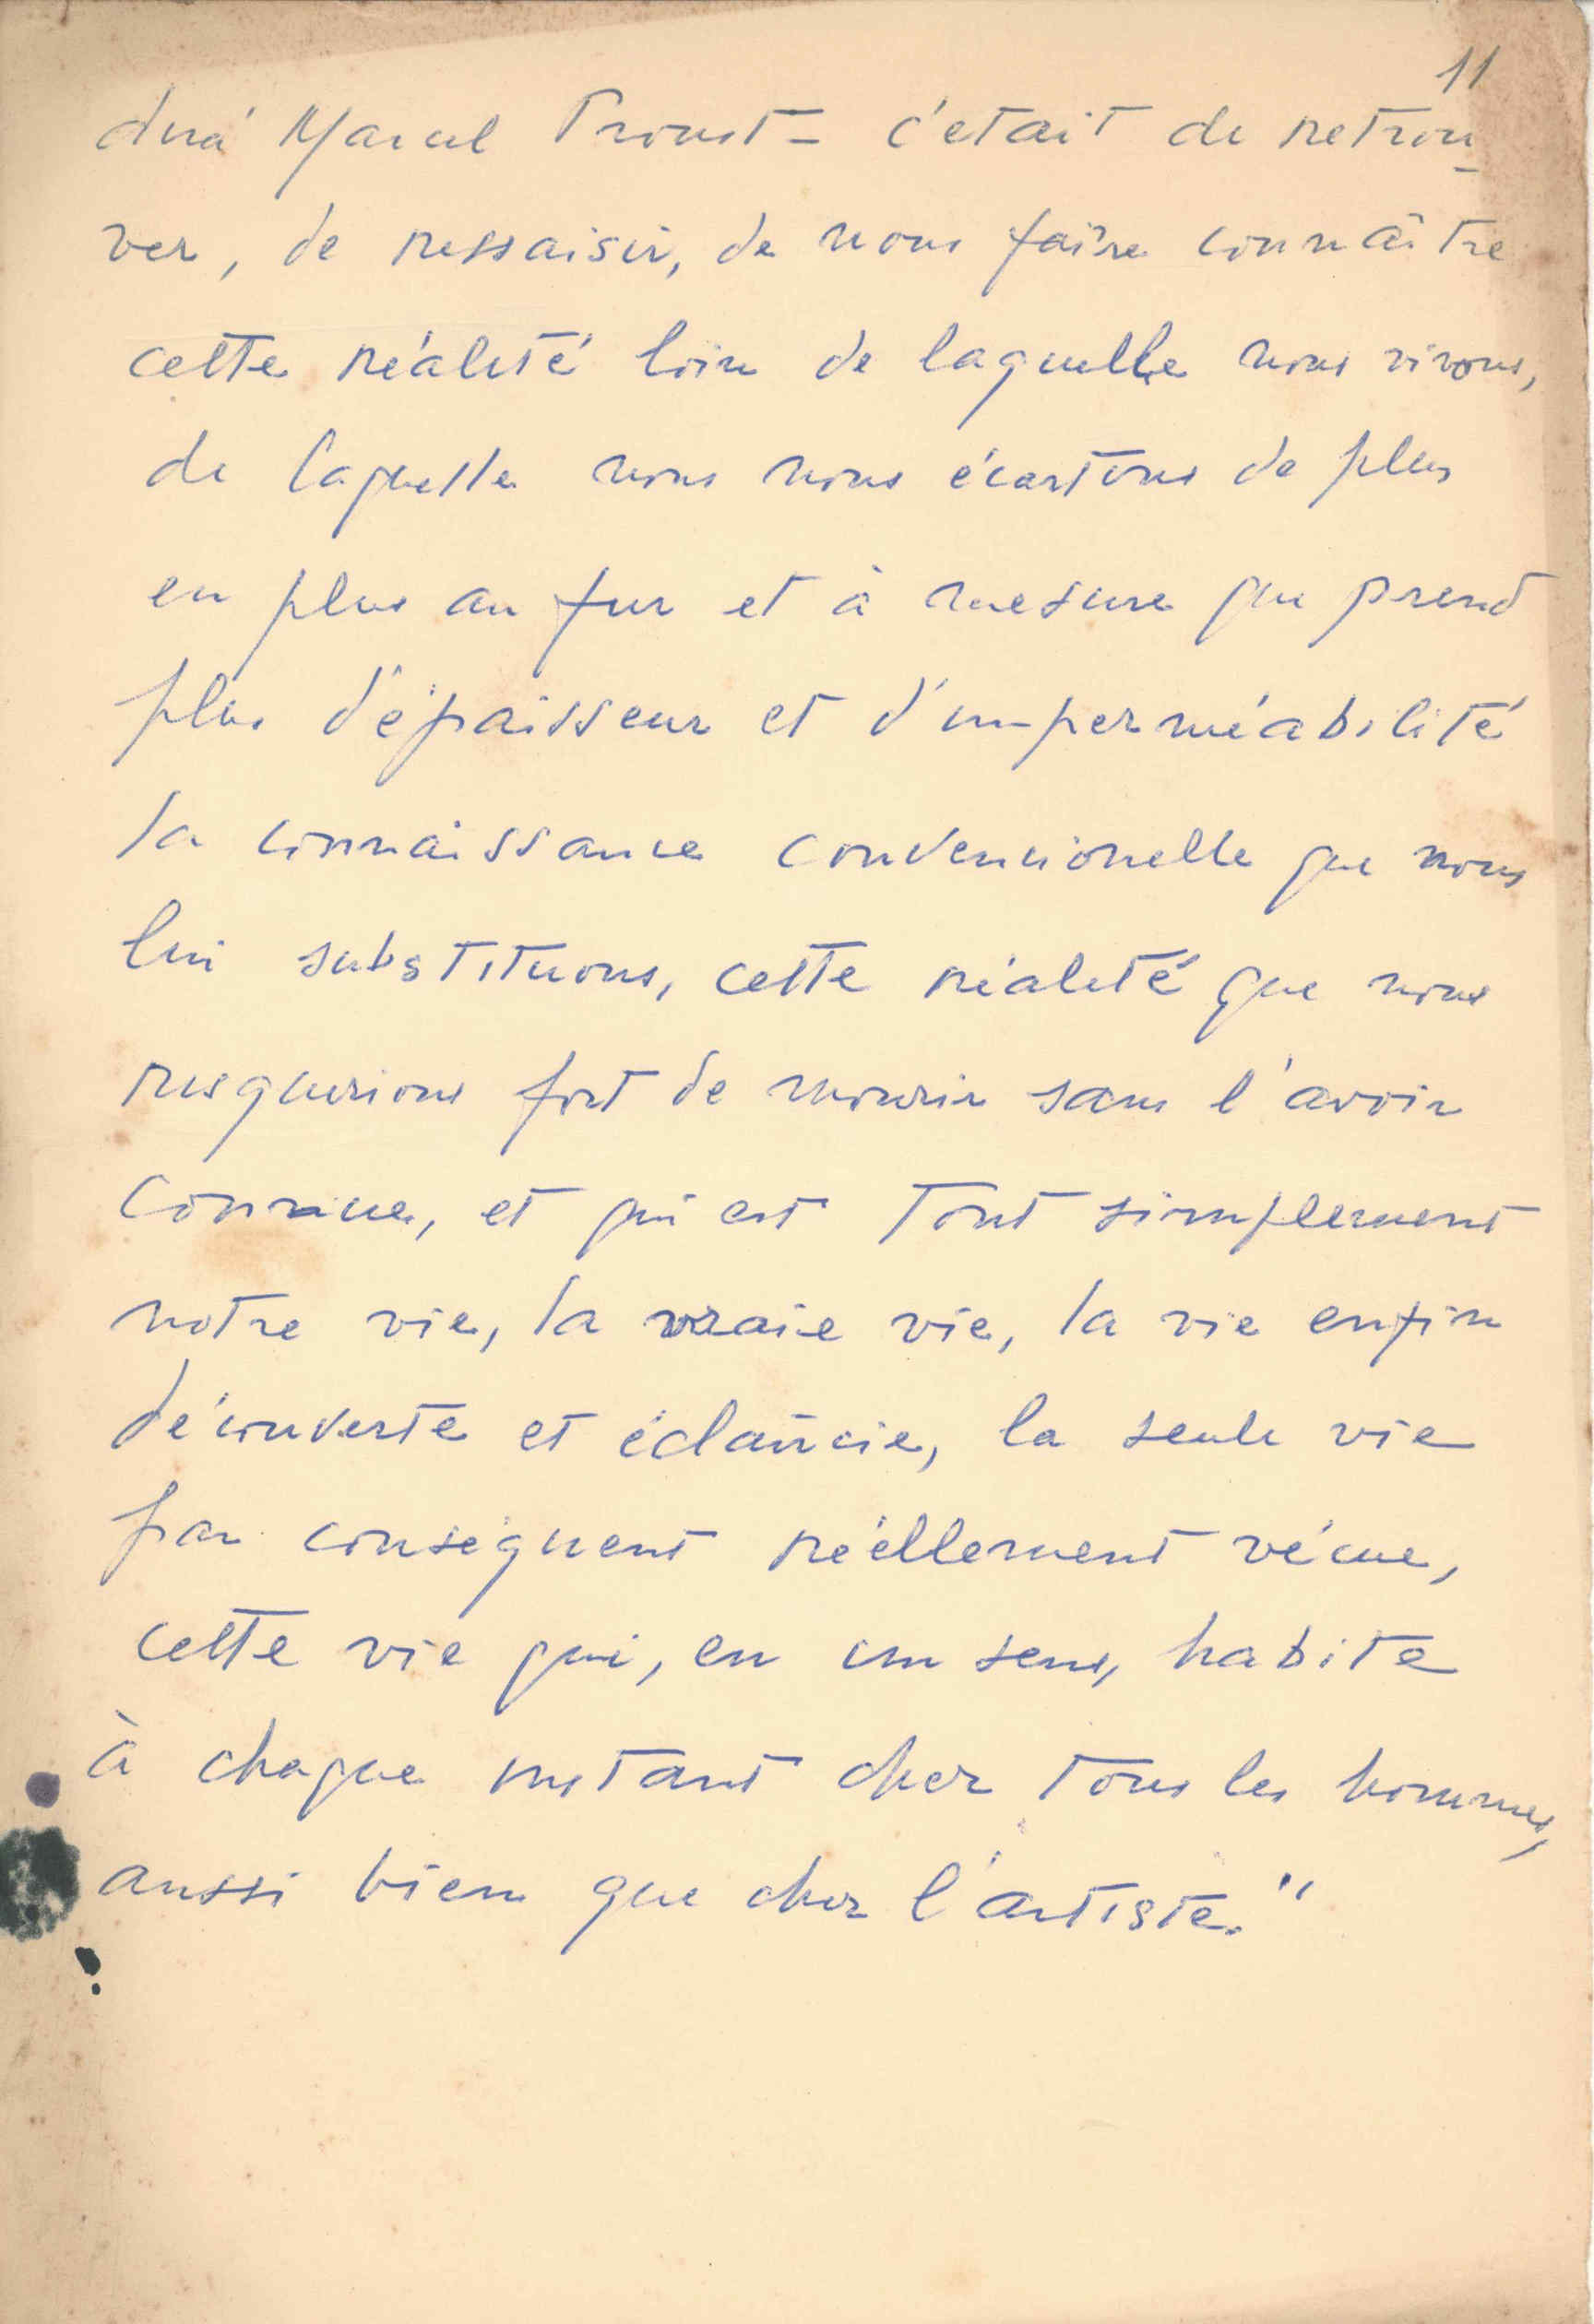 11
dirá Marcel Proust - c'etait de retrou-
ver, de ressaisir, de nous faire connaître
cette réalité loin de laquelle nous vivons,
de laquelle nous nous écartons de plus
en plus au fur et à mesure que prend
plus d'épaisseur et d'imperméabilité
la connaissance convencionelle que nous
lui substituons, cette réalité que nous
risquerions fort de mourir sans l'avoir
connue, et qui est tout simplement
notre vie, la vraie vie, la vie enfin
découverte et éclaircie, la seule vie
par conséquent réellement vécue,
cette vie qui, en un sens, habite
à chaque instant chez tous les hommes,
aussi bien que chez l'artiste."